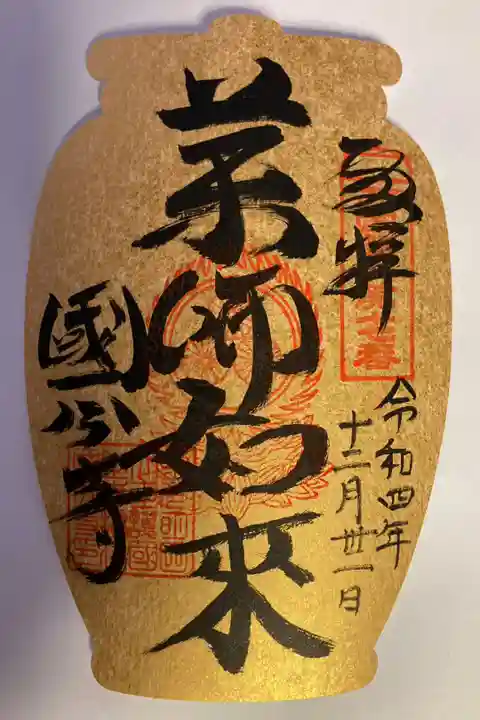 奉拝
令和四年
十二月卅一日
薬師如來
國分寺